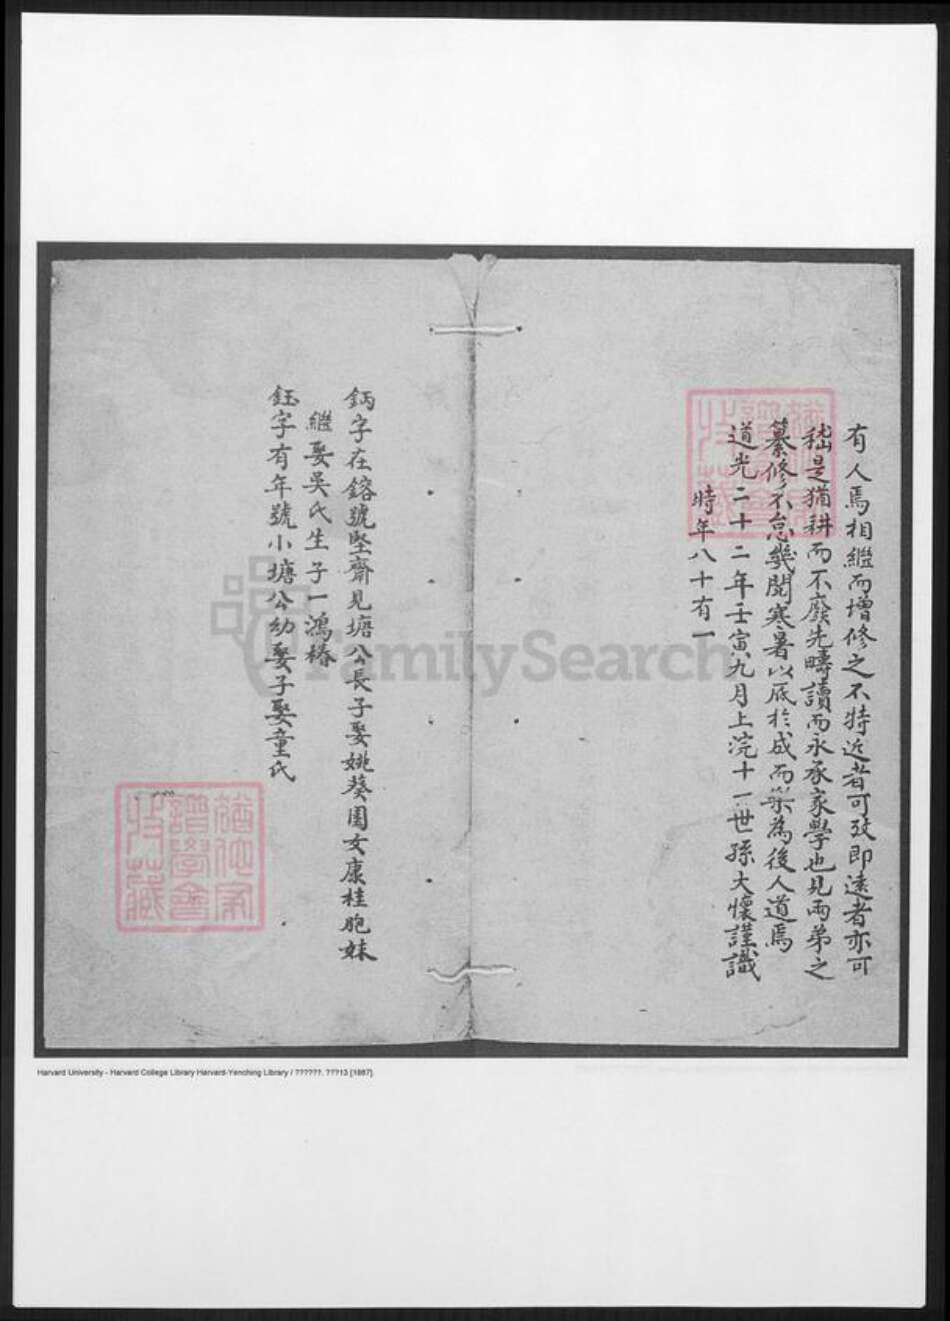 有人焉相繼而增修之不特近者可攷即遠者亦可
嵇是猶耕而不廢先疇讀而永承家學也見兩弟之
纂修不怠幾閱寒暑以底於成而樂為後人道焉
道光二十二年壬寅九月上浣十一世孫大懷謹識
時年八十有一
鈵字在鎔號堅齋見塘公長子娶姚葵圃女康桂胞妹
繼娶吳氏生子一鴻椿
鈺字有年號小塘公幼娶子娶童氏
FamilySearch
Harvard University - Harvard College Library Harvard-Yenching Library / ??????. ???13 [1887].